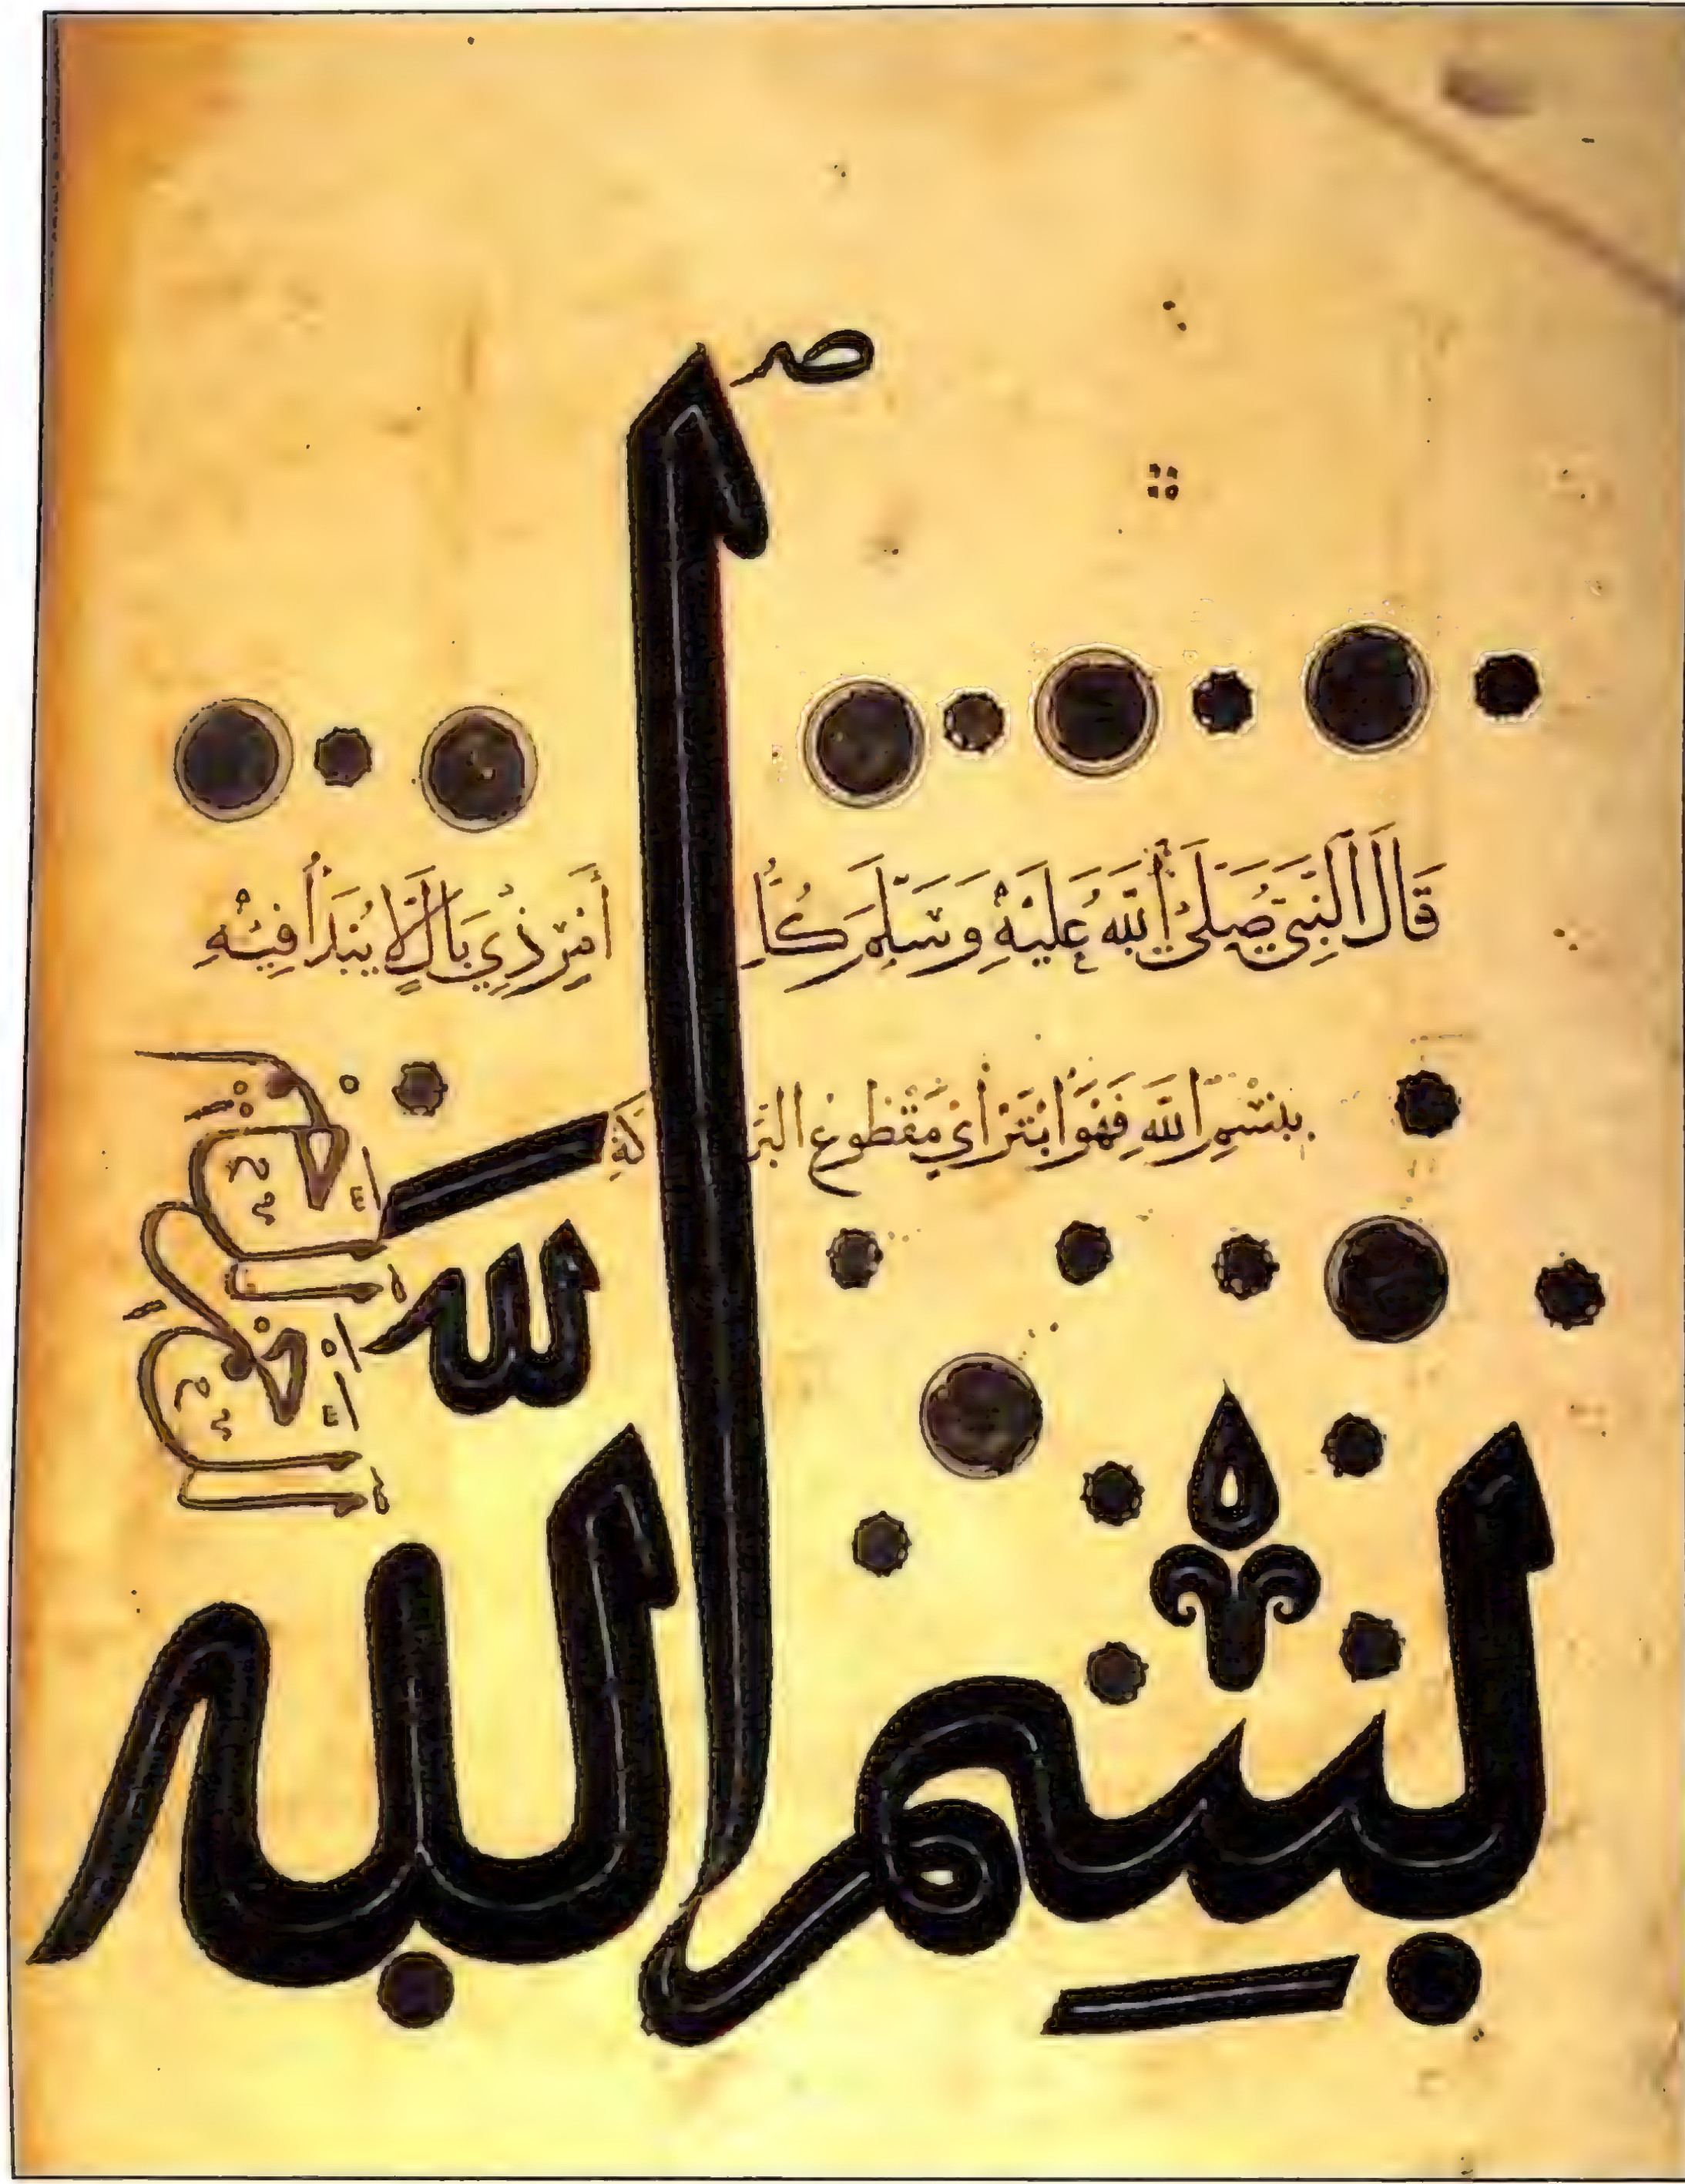 قَالَ النَّبِيُّ صَلَّى اللَّهُ عَلَيْهِ وَسَلَّمَ كُلُّ أَمْرٍ ذِي بَالٍ لَا يُبْدَأُ فِيهِ
بِبِسْمِ اللَّهِ فَهُوَ أَبْتَرُ أَيْ مَقْطُوعُ الْبَرَكَةِ
بِسْمِ اللَّهِ
الرحمن
الرحيم